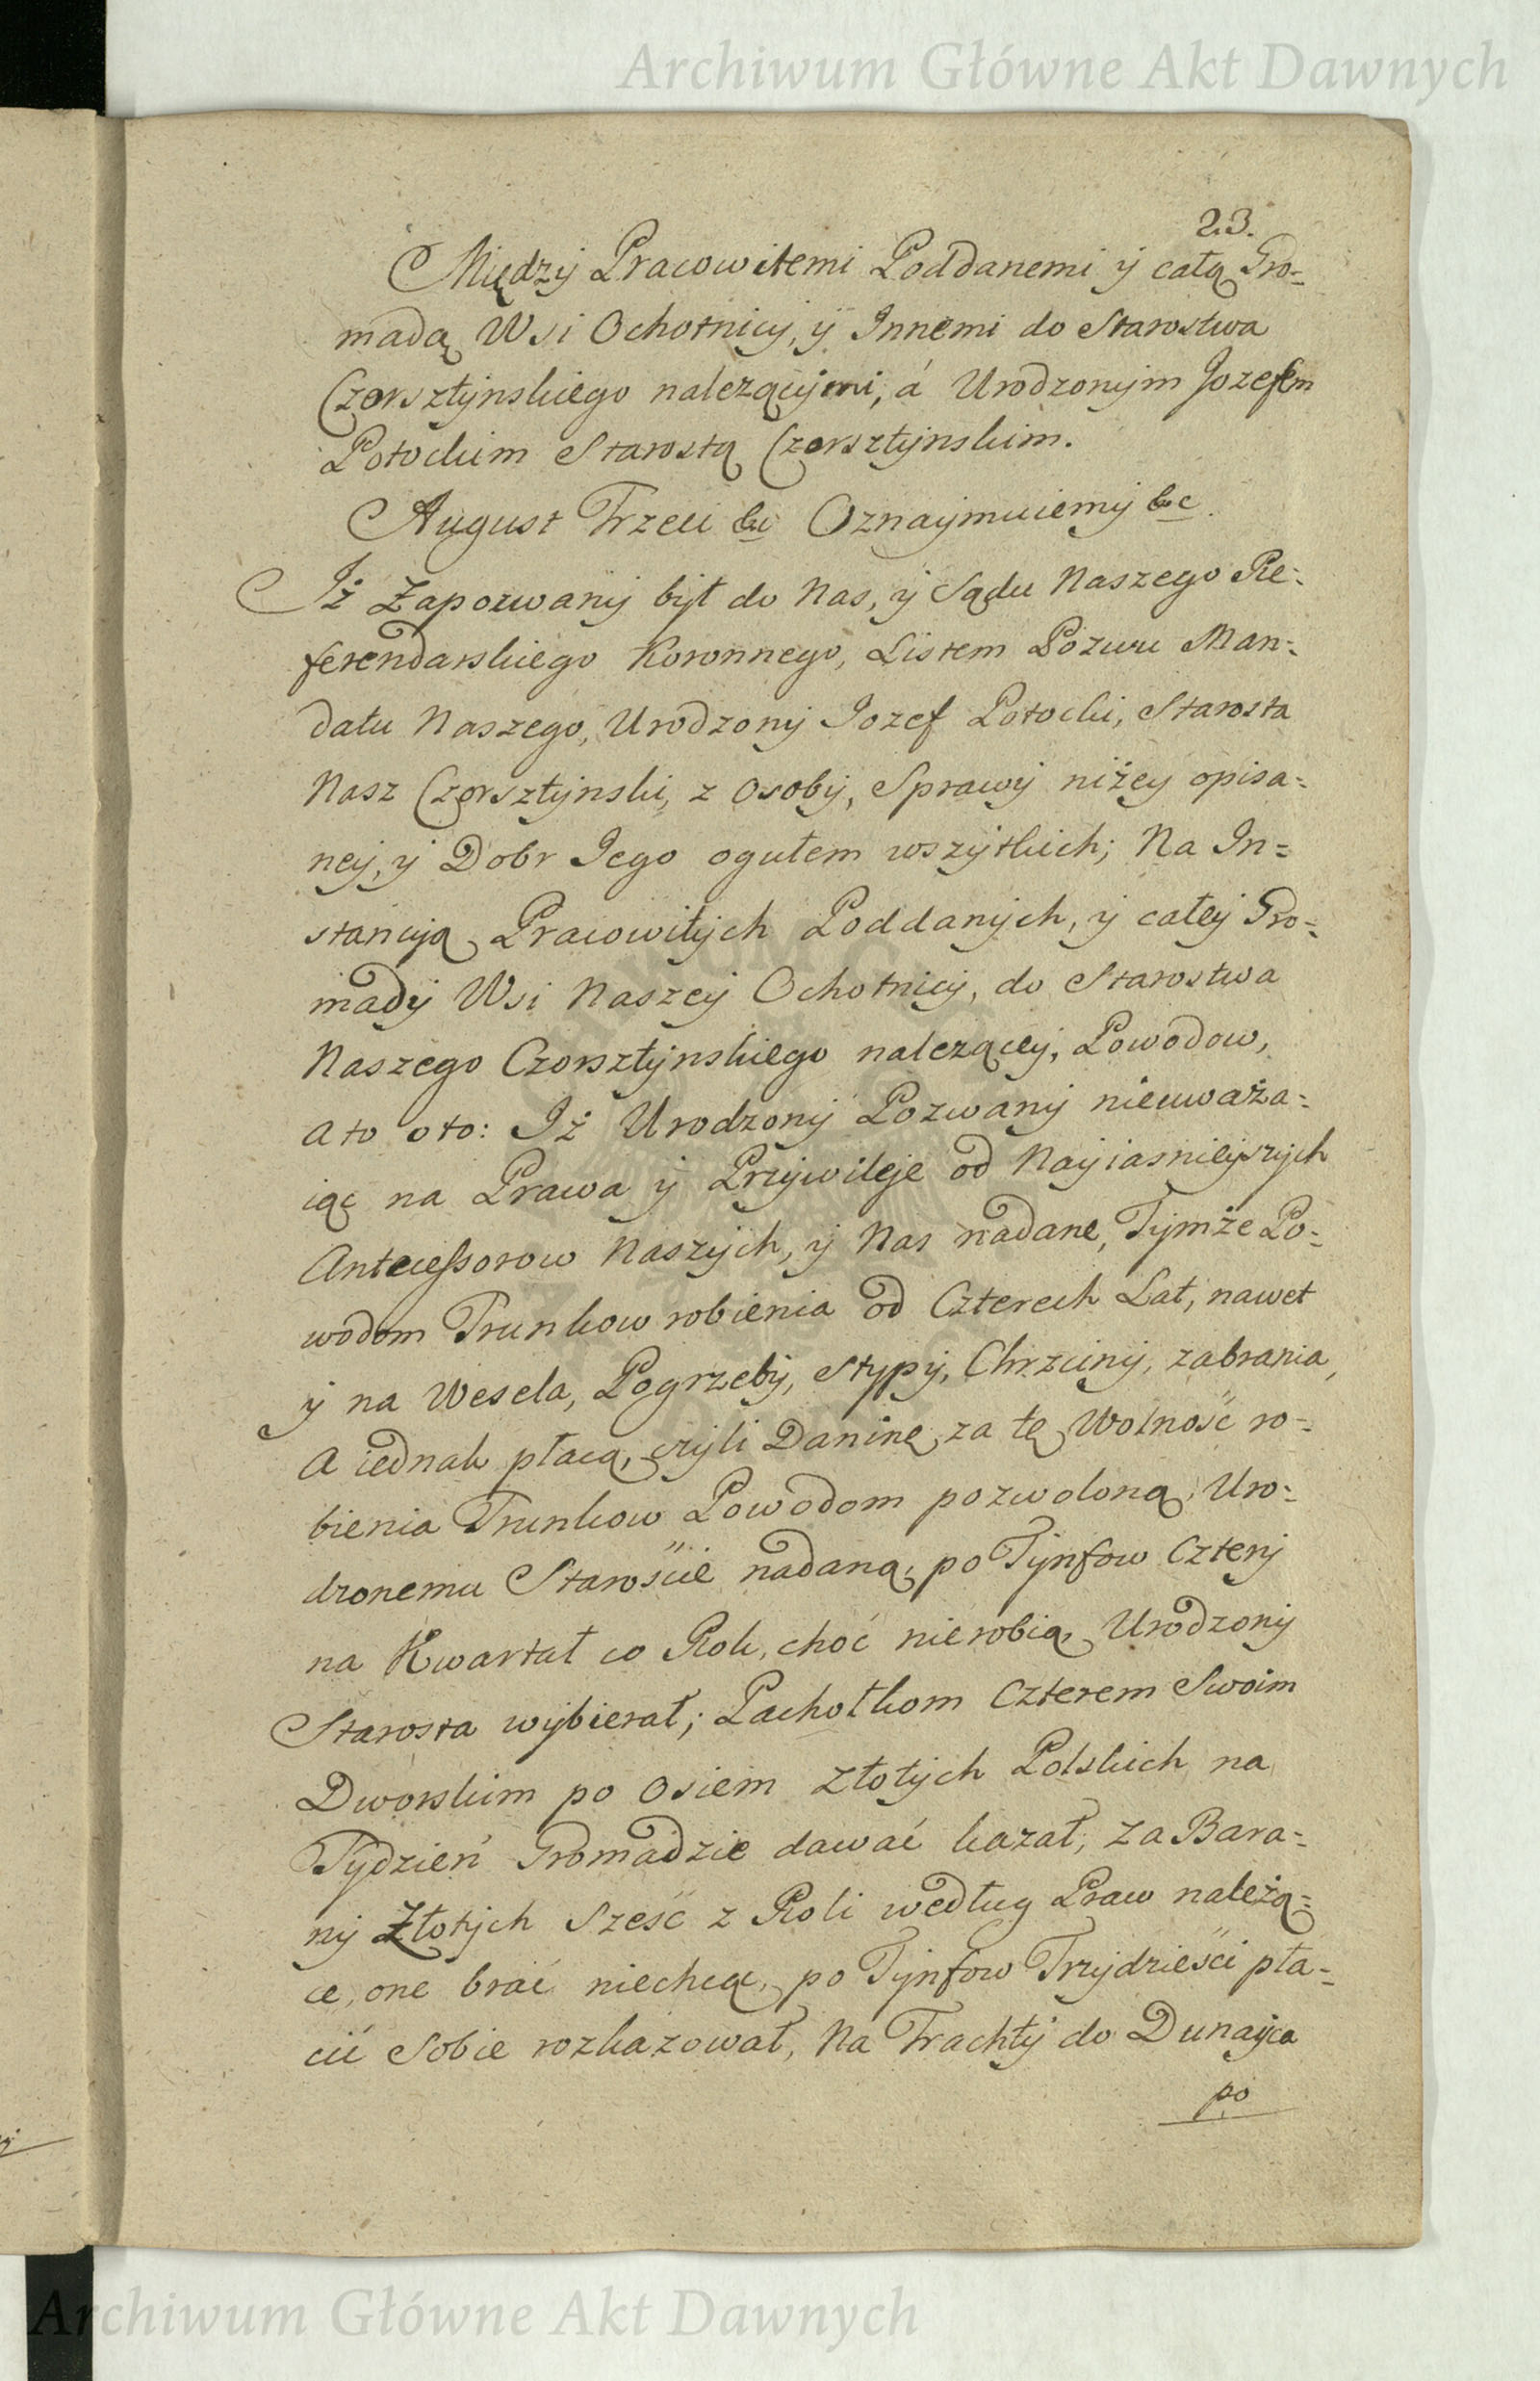 Archiwum Główne Akt Dawnych
23.
Między Pracowitemi Poddanemi y całą Gro=
madą Wsi Ochotnicy, y Innemi do Starostwa
Czorsztynskiego nalezącymi, á Urodzonym Jozefem
Potockim Starostą Czorsztynskim.
August Trzeci &c Oznaymuiemy &c.
Iż Zapozwany był do Nas, y Sądu Naszego Re=
ferendarskiego Koronnego, Listem Pozwu Man=
datu Naszego, Urodzony Jozef Potocki, Starosta
Nasz Czorsztynski, z Osoby, Sprawy niżey opisa=
ney, y Dobr Jego ogułem wszytkich; Na In=
stancyą Pracowitych Poddanych, y całey Gro=
mady Wsi Naszey Ochotnicy, do Starostwa
Naszego Czorsztynskiego nalezącey, Powodow,
A to oto: Iż Urodzony Pozwany nieuważa=
iąc na Prawa y Przywileje od Nayiasnieyszych
Antecessorow Naszych, y Nas nadane, Tymże Po=
wodom Trunkow robienia od Czterech Lat, nawet
y na Wesela, Pogrzeby, Stypy, Chrzciny, zabrania,
A iednak płacą, czyli Daninę za tę Wolność ro=
bienia Trunkow Powodom pozwoloną, Uro=
dzonemu Starośćie nadaną, po Tynfow Cztery
na Kwartał co Rok, choć nierobią Urodzony
Starosta wybierał; Pachołkom Czterem Swoim
Dworskim po Osiem Złotych Polskich na
Tydzień Gromadzie dawać kazał, za Bara=
ny Złotych Sześć z Roli według Praw należą=
ce, one brać niechcąc, po Tynfow Trzydzieści pła=
cić Sobie rozkazował, Na Trachty do Dunayca
po
Archiwum Główne Akt Dawnych